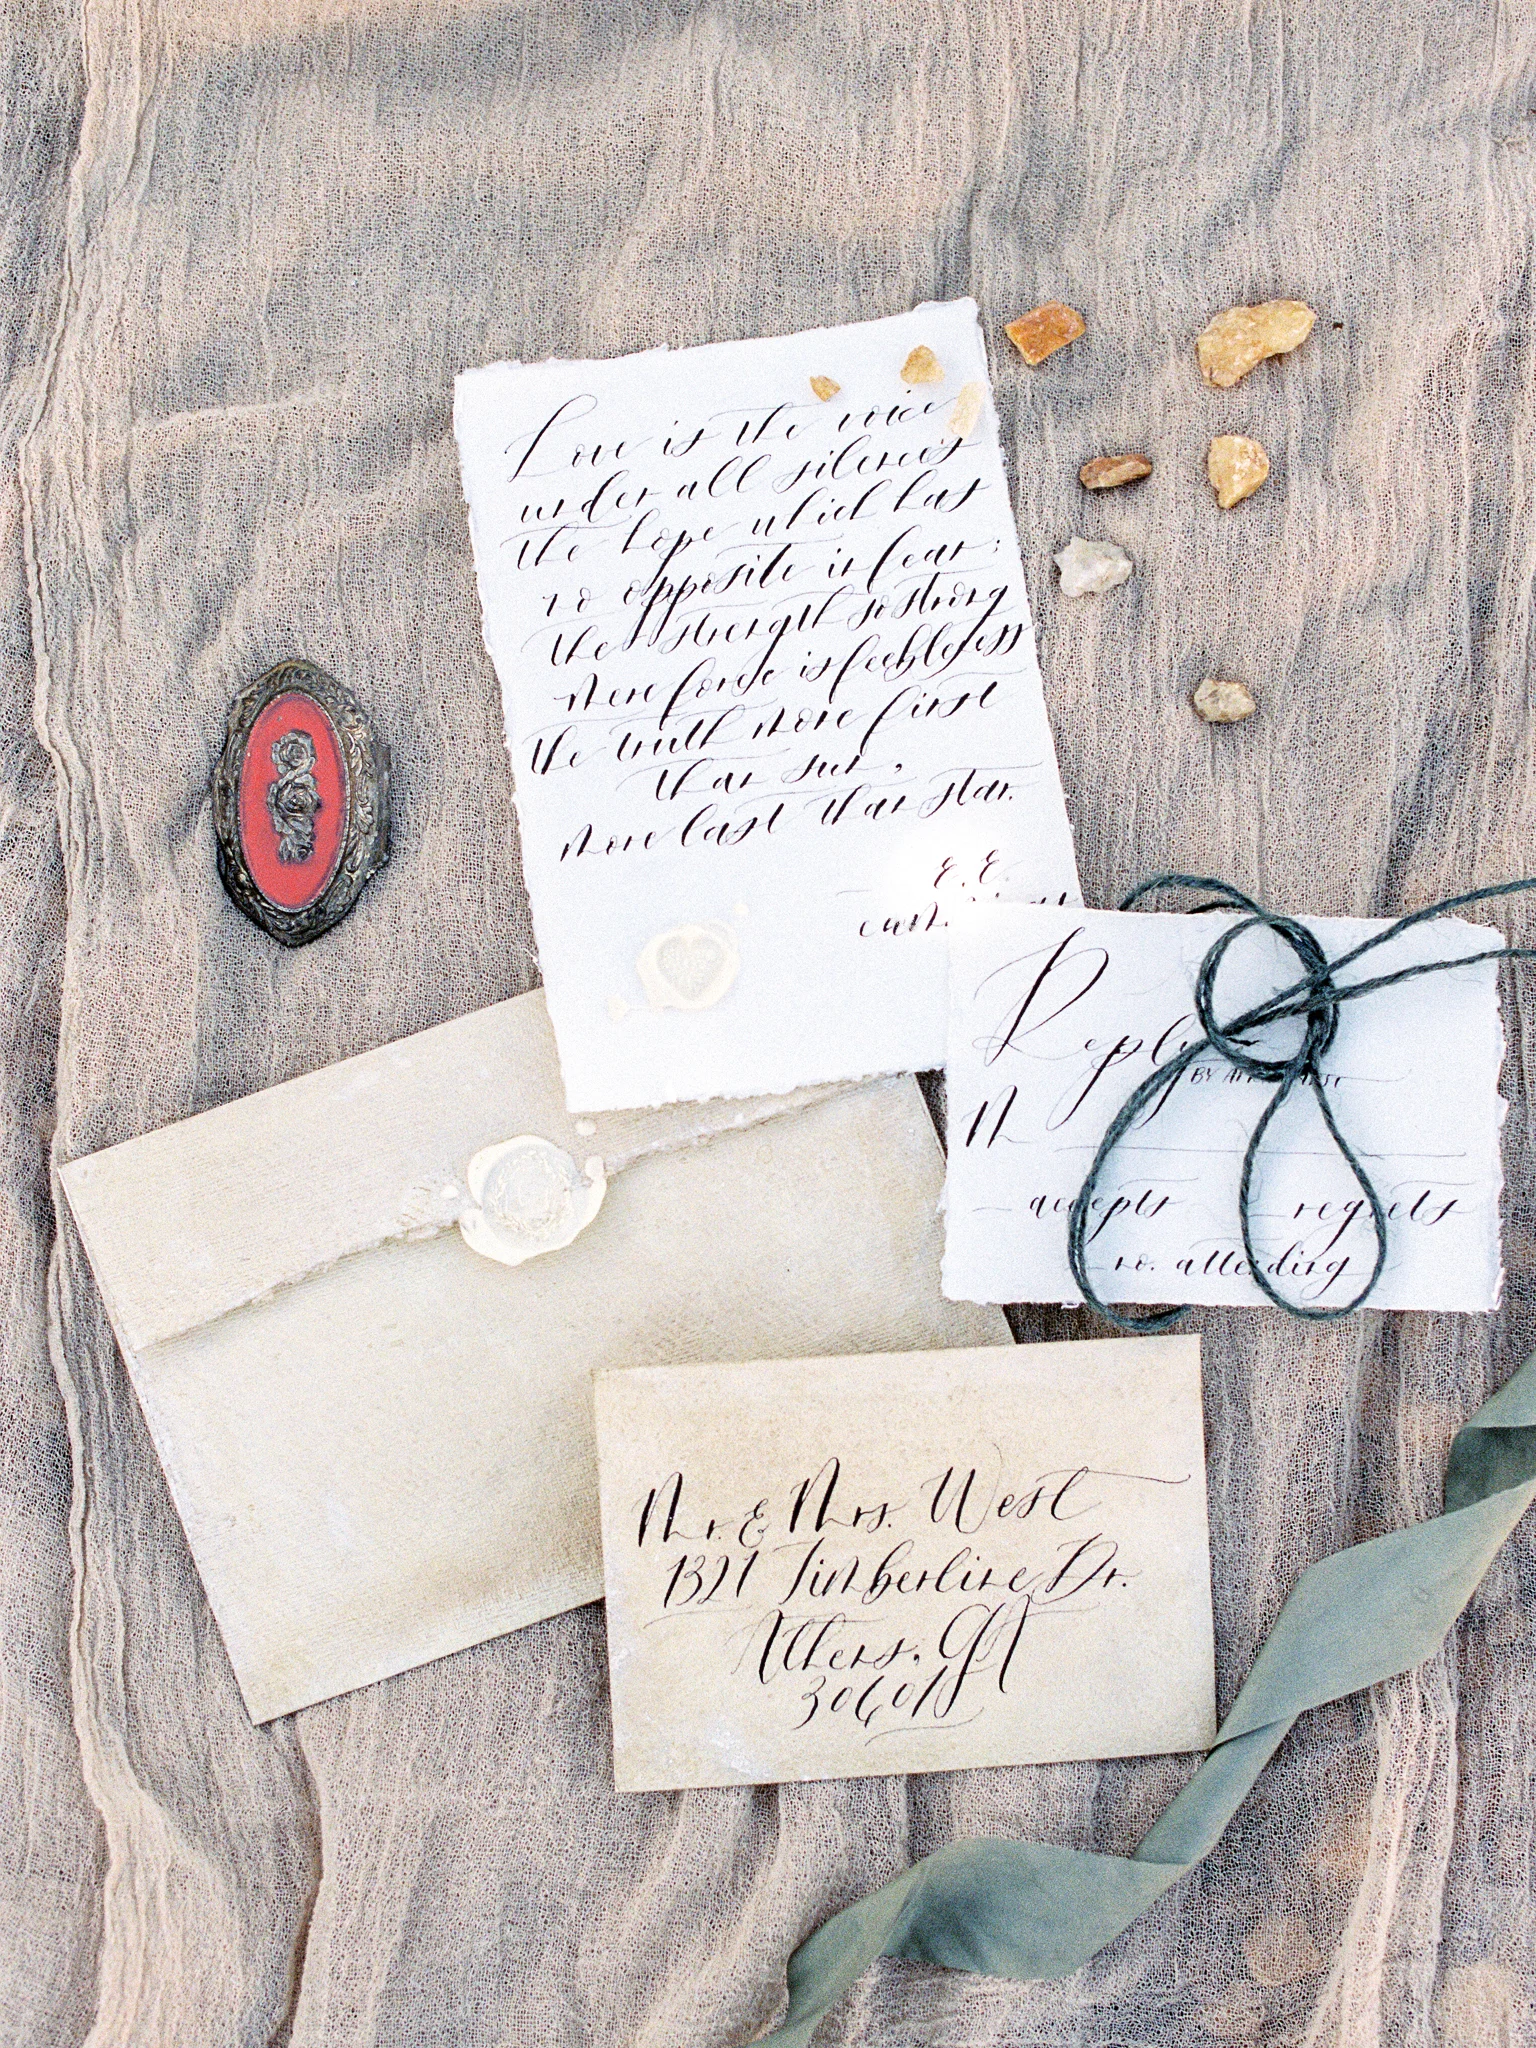 Love is the voice
under all silences
the hope which has
no opposite in fear:
the strength so strong
mere force is feebleness
the truth more first
than sun,
more last than star.
E. E.
Reply
BY
M
accepts regrets
no. attending
Mr. & Mrs. West
1321 Timberline Dr.
Athens, GA
30601